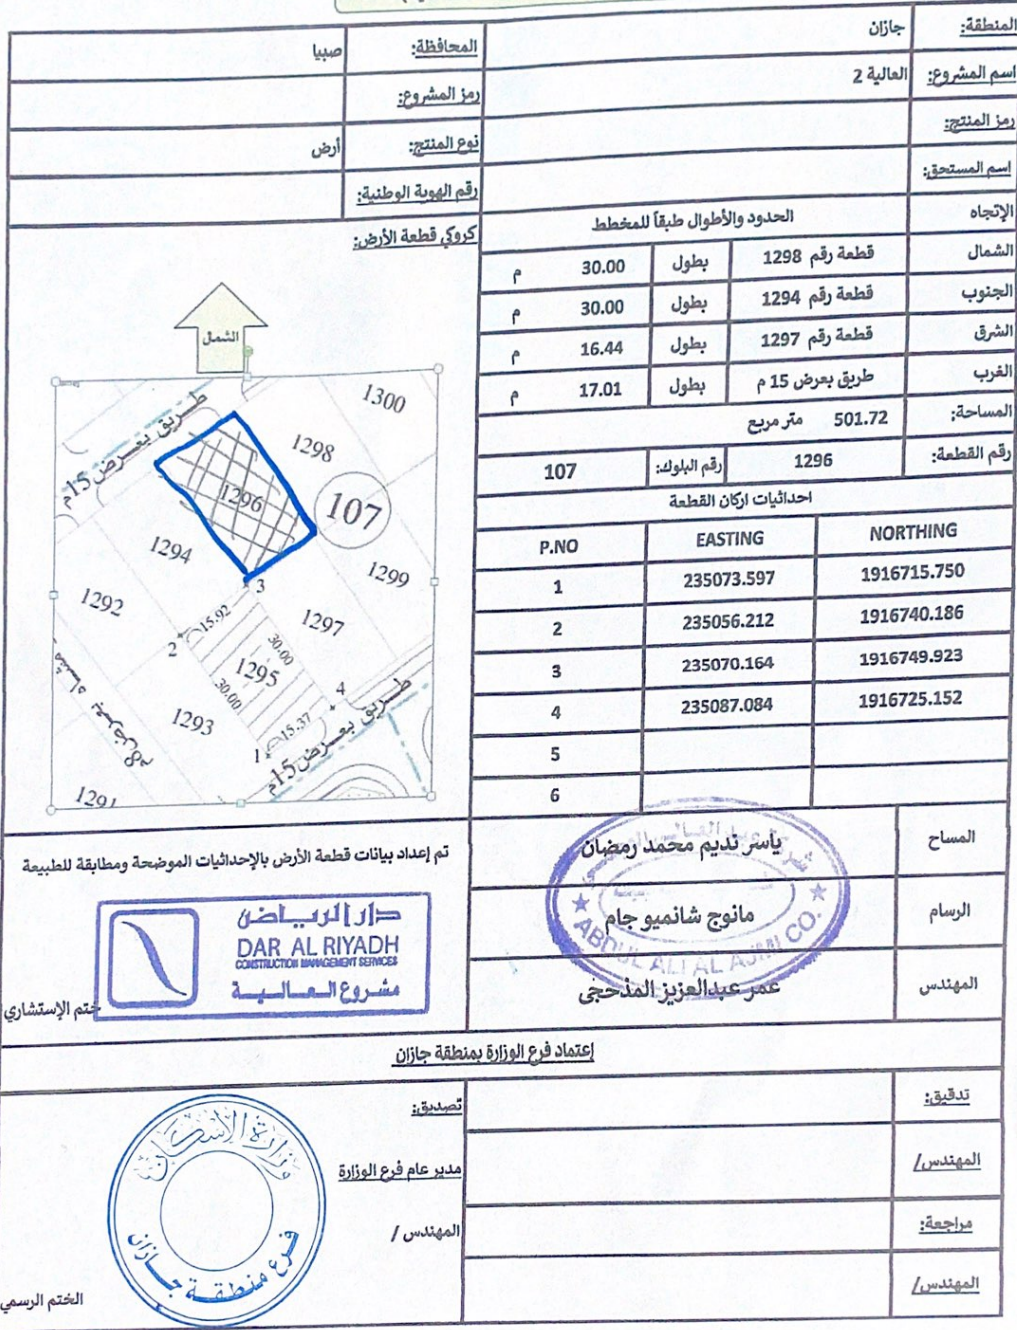 المنطقة: جازان المحافظة: صبيا
اسم المشروع: العالية 2 رمز المشروع:
رمز المنتج: نوع المنتج: أرض
اسم المستحق: رقم الهوية الوطنية:
الإتجاه الحدود والأطوال طبقاً للمخطط
الشمال قطعة رقم 1298 بطول 30.00 م
الجنوب قطعة رقم 1294 بطول 30.00 م
الشرق قطعة رقم 1297 بطول 16.44 م
الغرب طريق بعرض 15 م بطول 17.01 م
المساحة: 501.72 متر مربع
رقم القطعة: 1296 رقم البلوك: 107
احداثيات اركان القطعة
P.NO EASTING NORTHING
1 235073.597 1916715.750
2 235056.212 1916740.186
3 235070.164 1916749.923
4 235087.084 1916725.152
5
6
كروكي قطعة الأرض:
الشمال
طريق بعرض 15م
1300
1298
1296
107
1294
1299
3
1292
15.92
1297
2
30.00
1295
30.00
4
1293
15.37
1
طريق بعرض 15م
1291
المساح ياسر نديم محمد رمضان
الرسام مانوج شانميو جام
المهندس عمر عبدالعزيز المذحجى
ABDUL ALI AL AJMI CO.
تم إعداد بيانات قطعة الأرض بالإحداثيات الموضحة ومطابقة للطبيعة
دار الرياض
DAR AL RIYADH
CONSTRUCTION MANAGEMENT SERVICES
مشروع العالية
ختم الإستشاري
إعتماد فرع الوزارة بمنطقة جازان
تدقيق:
المهندس/
مراجعة:
المهندس/
تصديق:
مدير عام فرع الوزارة
المهندس /
وزارة الإسكان
فرع منطقة جازان
الختم الرسمي